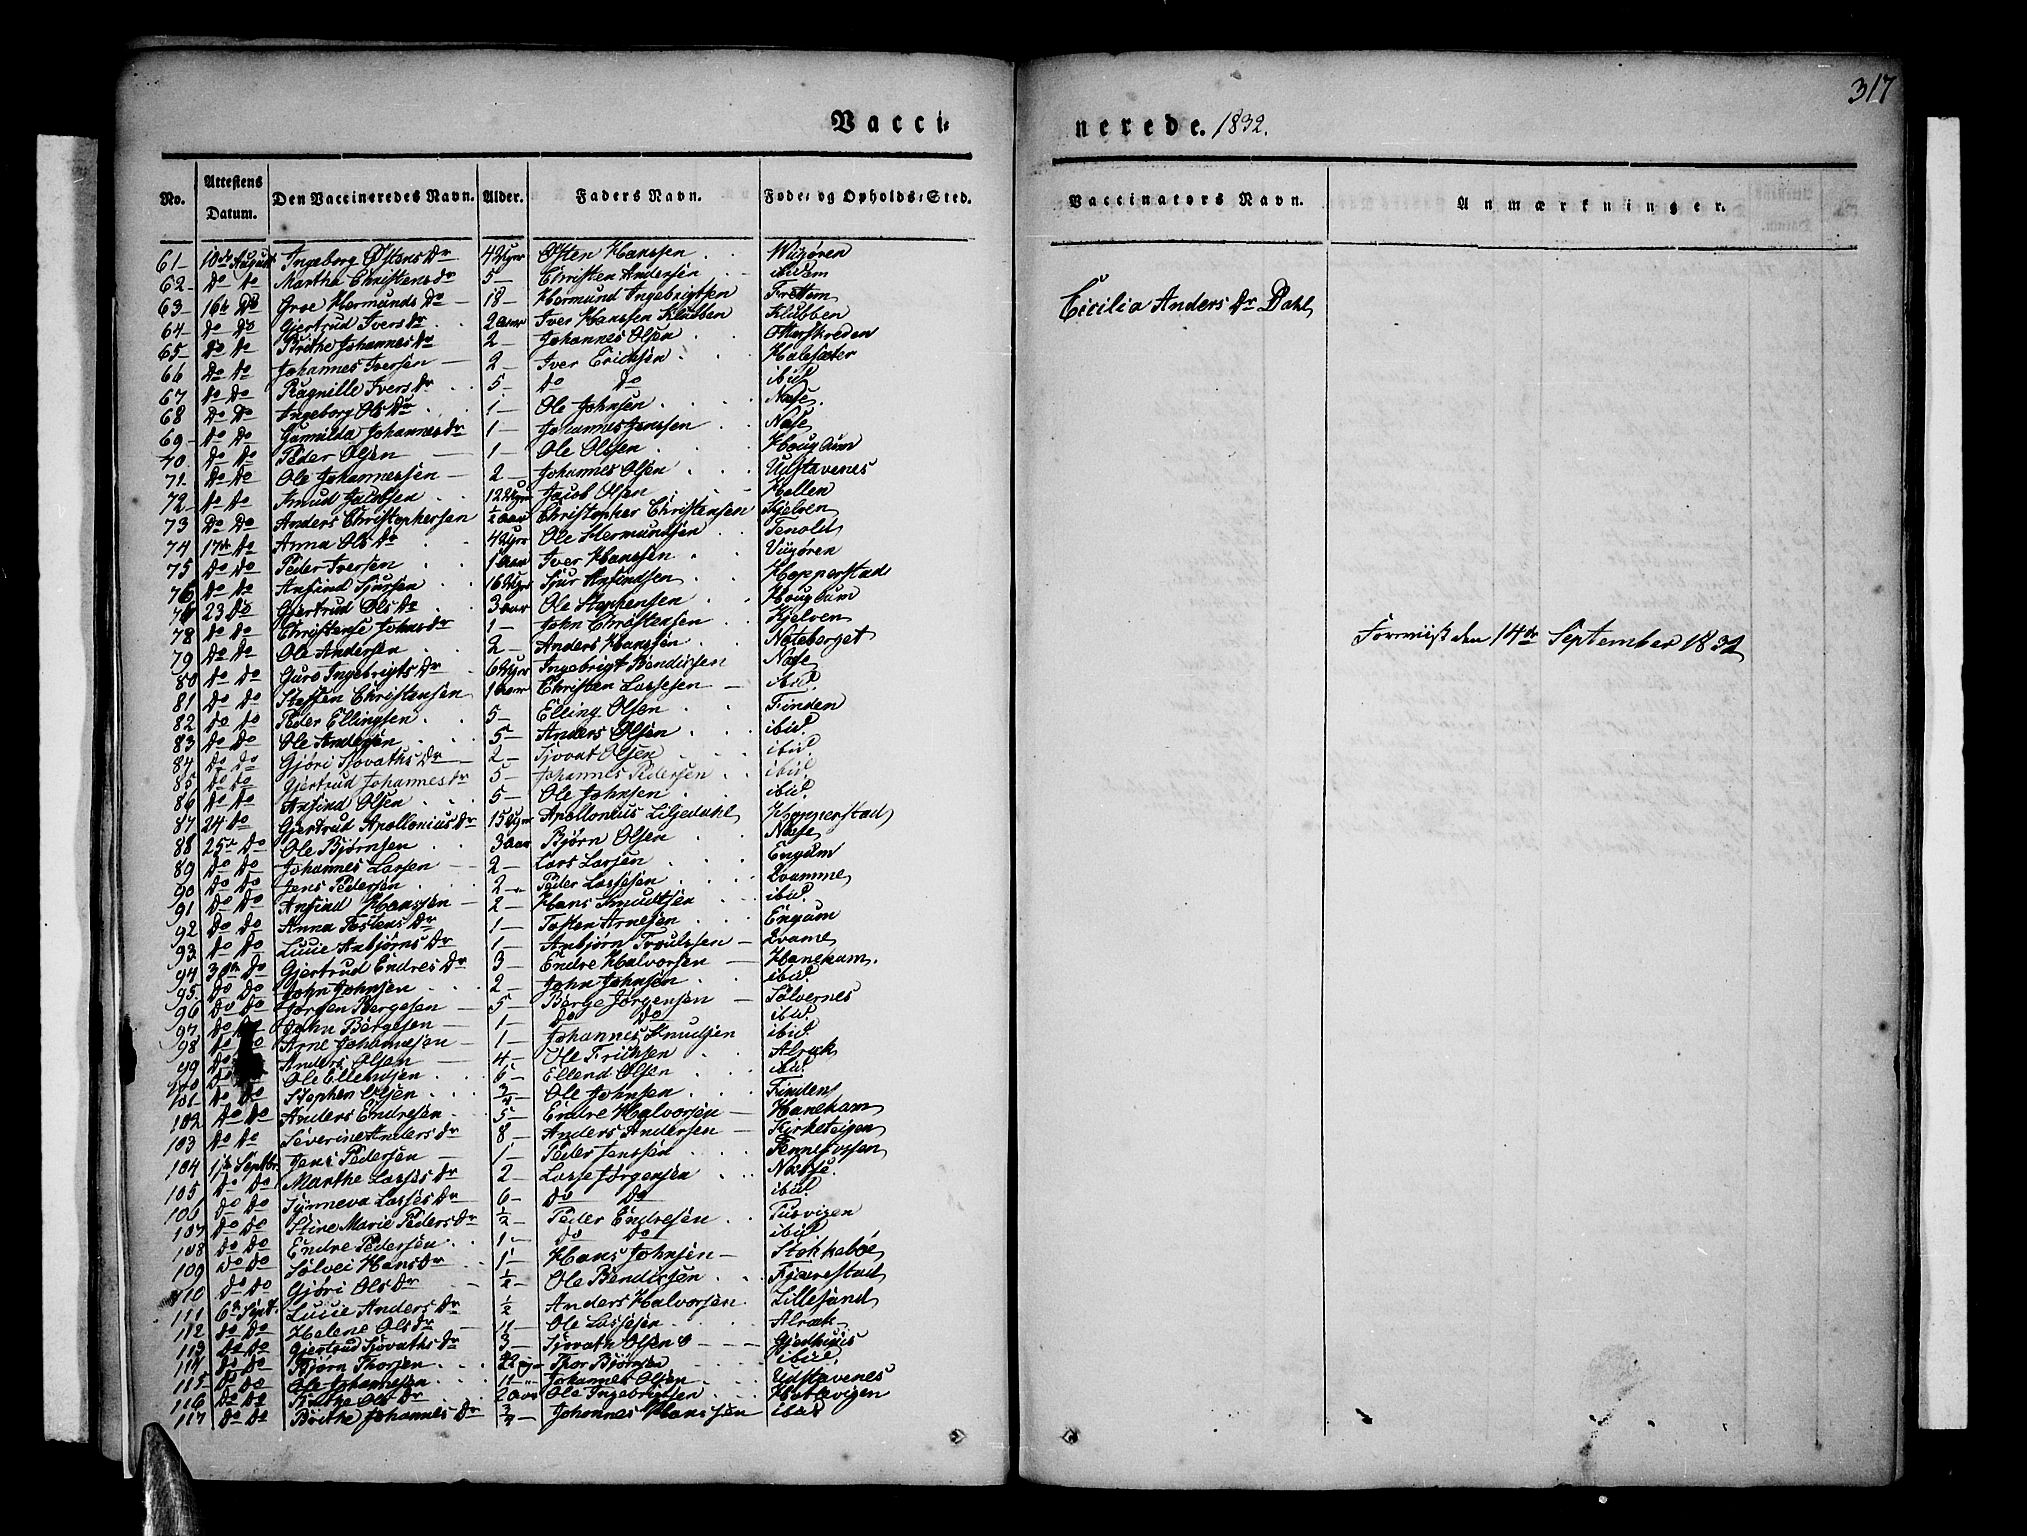 317
Vacci=
nerede. 1832.
No. Attestens Datum. Den Vaccineredes Navn. Alder. Faders Navn. Føde= og Opholds=Sted.
Vaccinateurs Navn. Anmærkninger.
61 10de August Ingeborg Østens Dr 4 Uger Østen Hanssen
62 Do Do Marthe Christens dr 5 Christen Andersen ibidem
63 16de Do Hermunds Dr 18 Hermund Ingebrigtsen Frettem
Cicilia Anders Dr Dahl
64 Do Do Giertrud Ivers dr 2 aar Iver Hanssen Klubben Klubben
65 Do Do Brithe Johannes dr 2 Johannes Olsen
66 Do Do Johannes Iversen 2 Iver Ericksen Halesæter
67 Do Do Ragnille Ivers dr 5 Do Do ibid
68 Do Do Ingeborg Ols Dr 1 Ole Johnsen Nase
69 Do Do Gunnilda Johannes dr 1 Johannes Nase
70 Do Do Peder Olsen 1 Ole Olsen Hougsum
71 Do Do Ole Johannessen 2 Johannes Olsen Udstavenes
72 Do Do Knud Jacobsen 12 Uger Jacob Olsen Hellen
73 Do Do Anders Christophersen ½ aar Christopher Christensen Kjelven
74 17de Do Anna Ols Dr 4 Uger Ole Hermundsen Tenold
75 Do Do Peder Iversen 1 aar Iver Hanssen
76 Do Do Anfind Sjursen 16 Uger Siur Anfindsen Hopperstad
77 23 Do Gjertrud Ols Dr 3 aar Ole Stephensen Hougsum
78 Do Do Christense Johns dr 1 John Christensen Kjelven
79 Do Do Ole Andersen 2 Anders Hanssen Noteberget
80 Do Do Guro Ingebrigts Dr 6 Uger Ingebrigt Bendixsen Nase
81 Do Do Steffen Christensen 1 aar Christen Lassesen ibid.
82 Do Do Peder Ellingsen 5 Elling Olsen Finden
83 Do Do Ole Andersen 5 Anders Olsen ibid.
84 Do Do Gjøri Sjovaths Dr 2 Sjovat Olsen ibid.
85 Do Do Gjertrud Johannes dr 5 Johannes Pedersen ibid
86 Do Do Anfind Olsen 5 Ole Johnsen ibid.
87 24 Do Gjertrud Apollonius Dr 15 Uger Apollonius Liljedahl Hopperstad
88 25de Do Ole Bjørnsen 3 aar Bjørn Olsen Nase
89 Do Do Johannes Larsen 2 Lars Larsen Engum
90 Do Do Jens Pedersen 2 Peder Lassesen Qvamme
91 Do Do Anfind Hanssen 2 Hans Knudtsen ibid
92 Do Do Anna Tostens Dr 1 Tosten Arnesen Engum
93 Do Do Lucie Anbjørns Dr 1 Anbjørn Troulssen Qvame
94 Do Gjertrud Endres Dr 3 Endre Halvorsen Hanekam.
95 Do Do John Johnsen 2 John Johnsen ibid.
96 Do Do Jørgen Børgesen 5 Børge Jørgensen Sølvernes
97 Do Do John Børgesen 1 Do Do ibid.
98 Do Do Arne Johannesen 1 Johannes Knudsen ibid
99 Do Anders Olsen 4 Ole Alræk
100 Do Ole Ellendsen 6 Ellend Olsen ibid.
101 Do Do Stephen Olsen ¾ Ole Johnsen Finden
102 Do Do Anders Endresen 5 Endre Halvorsen Hanekam
103 Do Do Severine Anders dr 8 Anders Andersen Kirketeigen
104 1de Septbr. Jens Pedersen 1 Peder Jenssen
105 Do Do Marthe Lasses Dr 2 Lasse Jørgensen Næsse
106 Do Do Synneva Lasses Dr 6 Do Do ibid
107 Do Do Stine Marie Peders Dr ½ Peder Endresen Tusvigen
108 Do Do Endre Pedersen 1 Do Do ibid
109 Do Do Sølvei Hans dr 1 Hans Johnsen Stokkebøe
110 Do Do Gjøri Ols Dr ½ Ole Bendixsen Fjærestad
111 6te Sept. Lucie Anders Dr ½ Anders Halvorsen Lillesand
112 Do Do Helene Ols dr Ole Lassesen Alræk
113 Do Do Gjertrud Sjovaths Dr 3 Sjovath Olsen Gjedhuus
114 Do Do Bjørn Thorsen 22 Thor Bjørnsen ibid
115 Do Do Ole Johannesen 11 Johannes Olsen Udstavenes
116 Do Do Brithe Ols Dr 2 aar Ole Ingebrigtsen Hatlevigen
117 Do Do Brithe Johannes Dr ¾ Johannes Hanssen ibid
den 14de September 1832